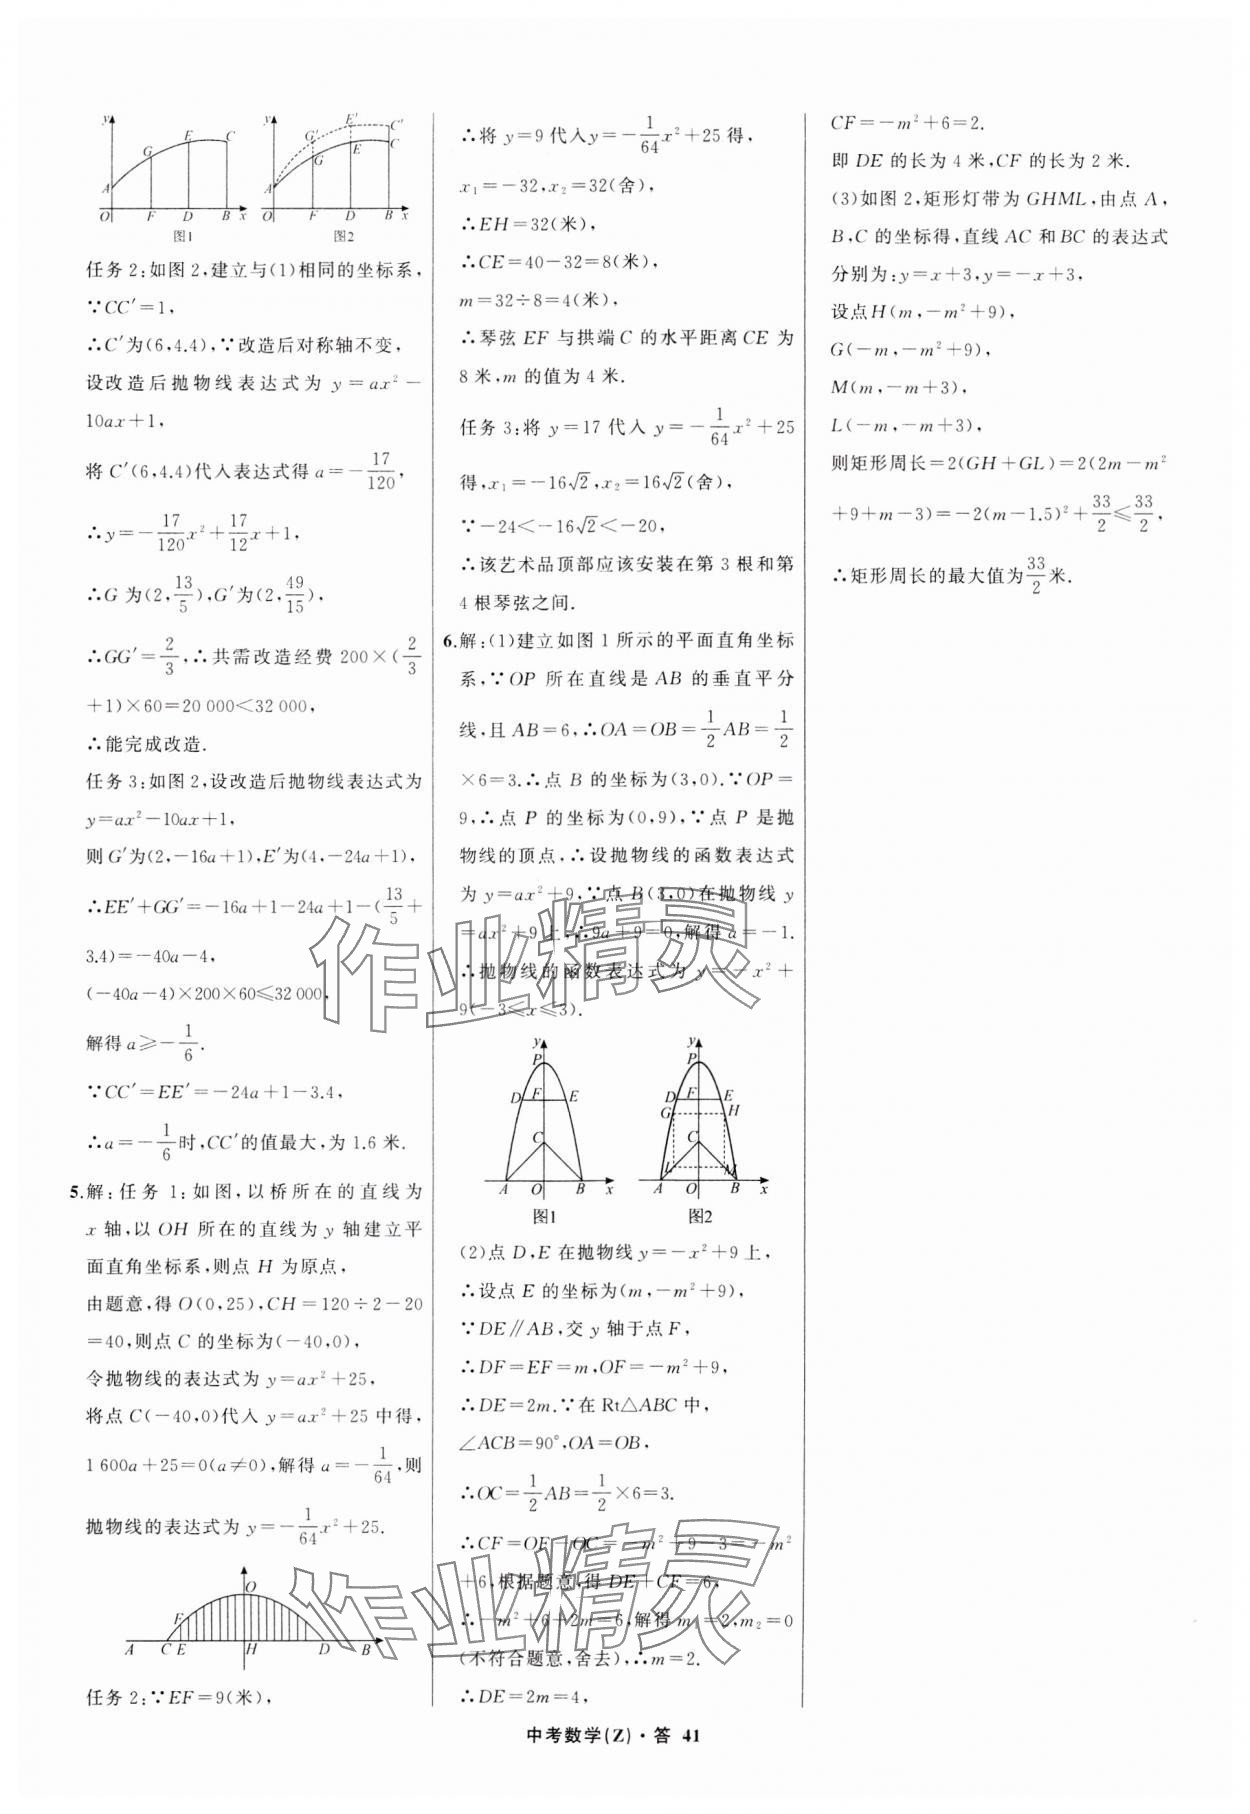 y
A
G
E
C
O
F
D
B
x
图1
y
A
G′
E′
C′
G
E
C
O
F
D
B
x
图2
任务2:如图2,建立与(1)相同的坐标系,
∵CC′=1,
∴C′为(6,4.4),∵改造后对称轴不变,
设改造后抛物线表达式为 y=ax²-
10ax+1,
将 C′(6,4.4)代入表达式得 a=-17/120,
∴y=-17/120x²+17/12x+1,
∴G 为(2,13/5),G′为(2,49/15),
∴GG′=2/3,∴共需改造经费 200×(2/3
+1)×60=20 000<32 000,
∴能完成改造.
任务3:如图2,设改造后抛物线表达式为
y=ax²-10ax+1,
则 G′为(2,-16a+1),E′为(4,-24a+1),
∴EE′+GG′=-16a+1-24a+1-(13/5+
3.4)=-40a-4,
(-40a-4)×200×60≤32 000,
解得 a≥-1/6.
∵CC′=EE′=-24a+1-3.4,
∴a=-1/6时,CC′的值最大,为 1.6 米.
5.解:任务 1:如图,以桥所在的直线为
x 轴,以 OH 所在的直线为 y 轴建立平
面直角坐标系,则点 H 为原点,
由题意,得 O(0,25),CH=120÷2-20
=40,则点 C 的坐标为(-40,0),
令抛物线的表达式为 y=ax²+25,
将点 C(-40,0)代入 y=ax²+25 中得,
1 600a+25=0(a≠0),解得 a=-1/64,则
抛物线的表达式为 y=-1/64x²+25.
O
F
A C E H D B
任务 2:∵EF=9(米),
∴将 y=9 代入y=-1/64x²+25 得,
x₁=-32,x₂=32(舍),
∴EH=32(米),
∴CE=40-32=8(米),
m=32÷8=4(米),
∴琴弦 EF 与拱端 C 的水平距离 CE 为
8 米,m 的值为 4 米.
任务 3:将 y=17 代入 y=-1/64x²+25
得,x₁=-16√2,x₂=16√2(舍),
∵-24<-16√2<-20,
∴该艺术品顶部应该安装在第 3 根和第
4 根琴弦之间.
6.解:(1)建立如图 1 所示的平面直角坐标
系,∵OP 所在直线是 AB 的垂直平分
线,且 AB=6,∴OA=OB=1/2AB=1/2
×6=3.∴点 B 的坐标为(3,0).∵OP=
9,∴点 P 的坐标为(0,9),∵点 P 是抛
物线的顶点,∴设抛物线的函数表达式
为 y=ax²+9,∵点 B(3,0)在抛物线 y
=ax²+9 上,∴9a+9=0,解得 a=-1.
∴抛物线的函数表达式为 y=-x²+
9(-3≤x≤3).
y
P
D
F
E
C
A
O
B
x
图1
y
P
D
F
E
G
H
C
L
M
A
O
B
x
图2
(2)点 D,E 在抛物线 y=-x²+9 上,
∴设点 E 的坐标为(m,-m²+9),
∵DE∥AB,交 y 轴于点 F,
∴DF=EF=m,OF=-m²+9,
∴DE=2m.∵在 Rt△ABC 中,
∠ACB=90°,OA=OB,
∴OC=1/2AB=1/2×6=3.
∴CF=OF-OC=-m²+9-3=-m²
+6,根据题意,得 DE+CF=6,
∴-m²+6+2m=6,解得 m₁=2,m₂=0
(不符合题意,舍去),∴m=2.
∴DE=2m=4,
CF=-m²+6=2.
即 DE 的长为 4 米,CF 的长为 2 米.
(3)如图 2,矩形灯带为 GHML,由点 A,
B,C 的坐标得,直线 AC 和 BC 的表达式
分别为:y=x+3,y=-x+3,
设点H(m,-m²+9),
G(-m,-m²+9),
M(m,-m+3),
L(-m,-m+3),
则矩形周长=2(GH+GL)=2(2m-m²
+9+m-3)=-2(m-1.5)²+33/2≤33/2,
∴矩形周长的最大值为33/2米.
作业精灵
作业精灵
中考数学(Z)·答 41